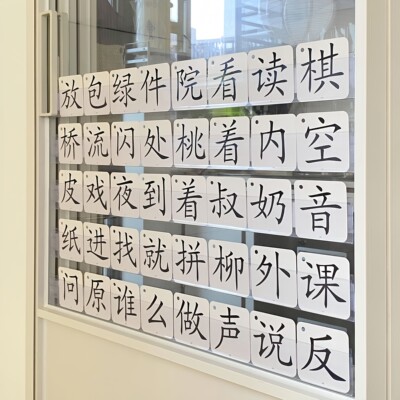 放包绿件院看读棋
桥流闪处桃着内空
皮戏夜到着叔奶音
纸进找就拼柳外课
问原谁么做声说反